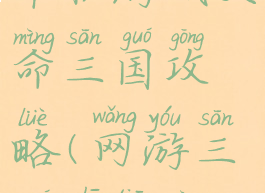 mìng sān guó gōng
命三国攻
lüè wǎng yóu sān
略(网游三